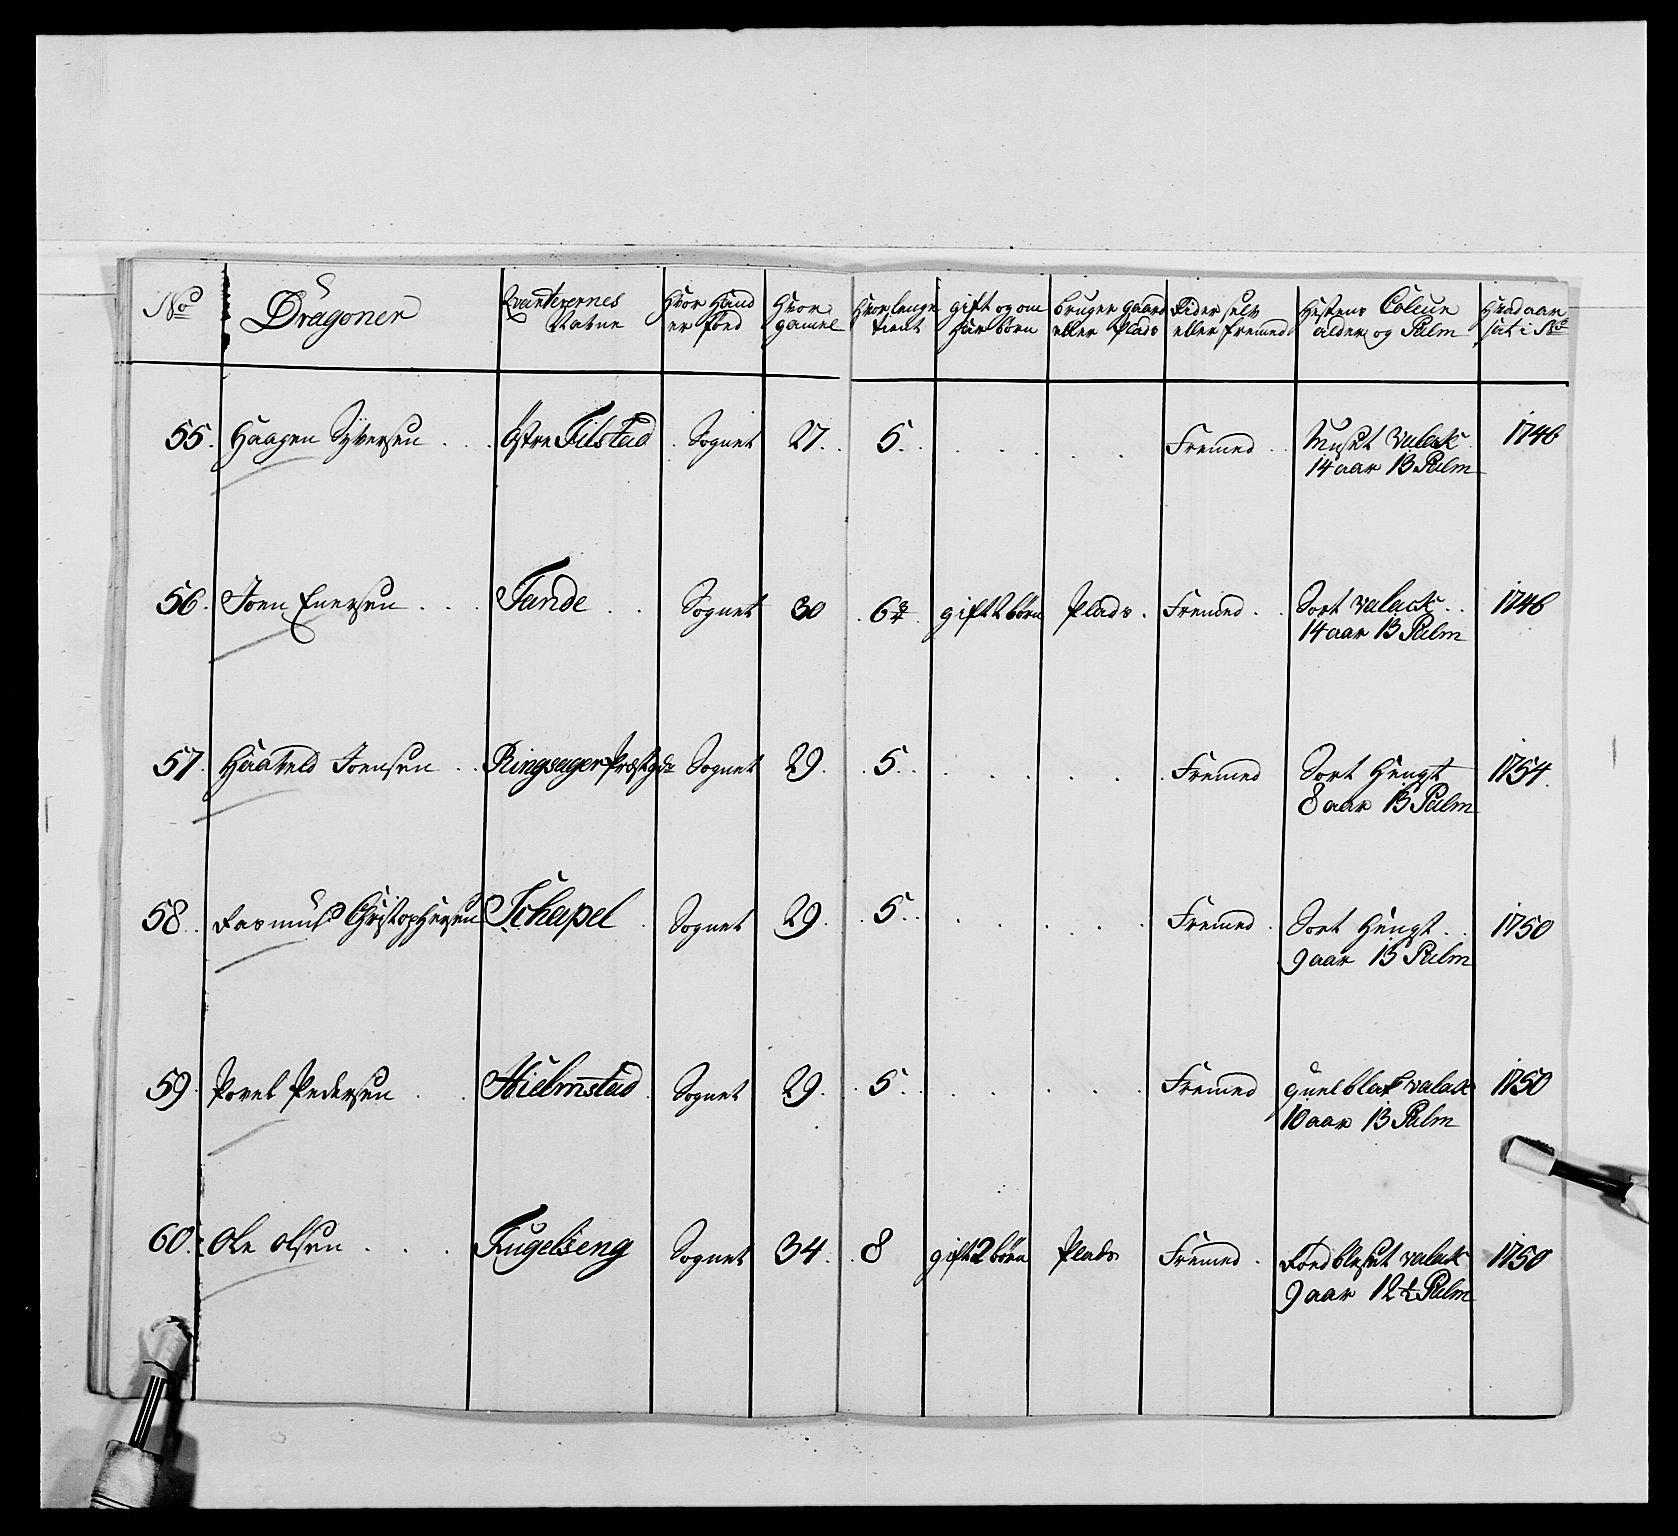 No Dragoner Qvarterernes Nafne Hvor Hand er föed Hvor gamel Hvorlenge tient gift og om Har börn bruger gaard eller Plads Rider selv eller fremed Hestens Coleur alder og Palm Hvad aar sat i No
55. Haagen Syversen . . . Östre Tilstad . Sognet 27. . 5. . . . . . Fremed . . Muset Valack
14 aar 13 Palm 1746
56. Joen Enersen . . . Tande . . Sognet 30 . 6¾ . gift 2 börn Plads . Fremed . . Sort Valack . .
14 aar 13 Palm 1746
57. Haaveld Joensen . . Ringsager Præstgd Sognet 29. . 5. . . . . . . . Fremed Sort Hengst
8 aar 13 Palm 1754.
58. Rasmus Christophersen Schapel . Sognet 29. . 5. . . . . . . Fremed . Sort Hengst . .
9 aar 13 Palm 1750
59. Povel Pedersen . . Hielmstad . Sognet 29. . 5. . . . . . . Fremed guelblak valack
10 aar 13 Palm 1750
60. Ole Olsen . . . Fugelseng Sognet 34. . 8 gift 2 börn Plads Fremed . Rödbleset valack
9 aar 12½ Palm 1750